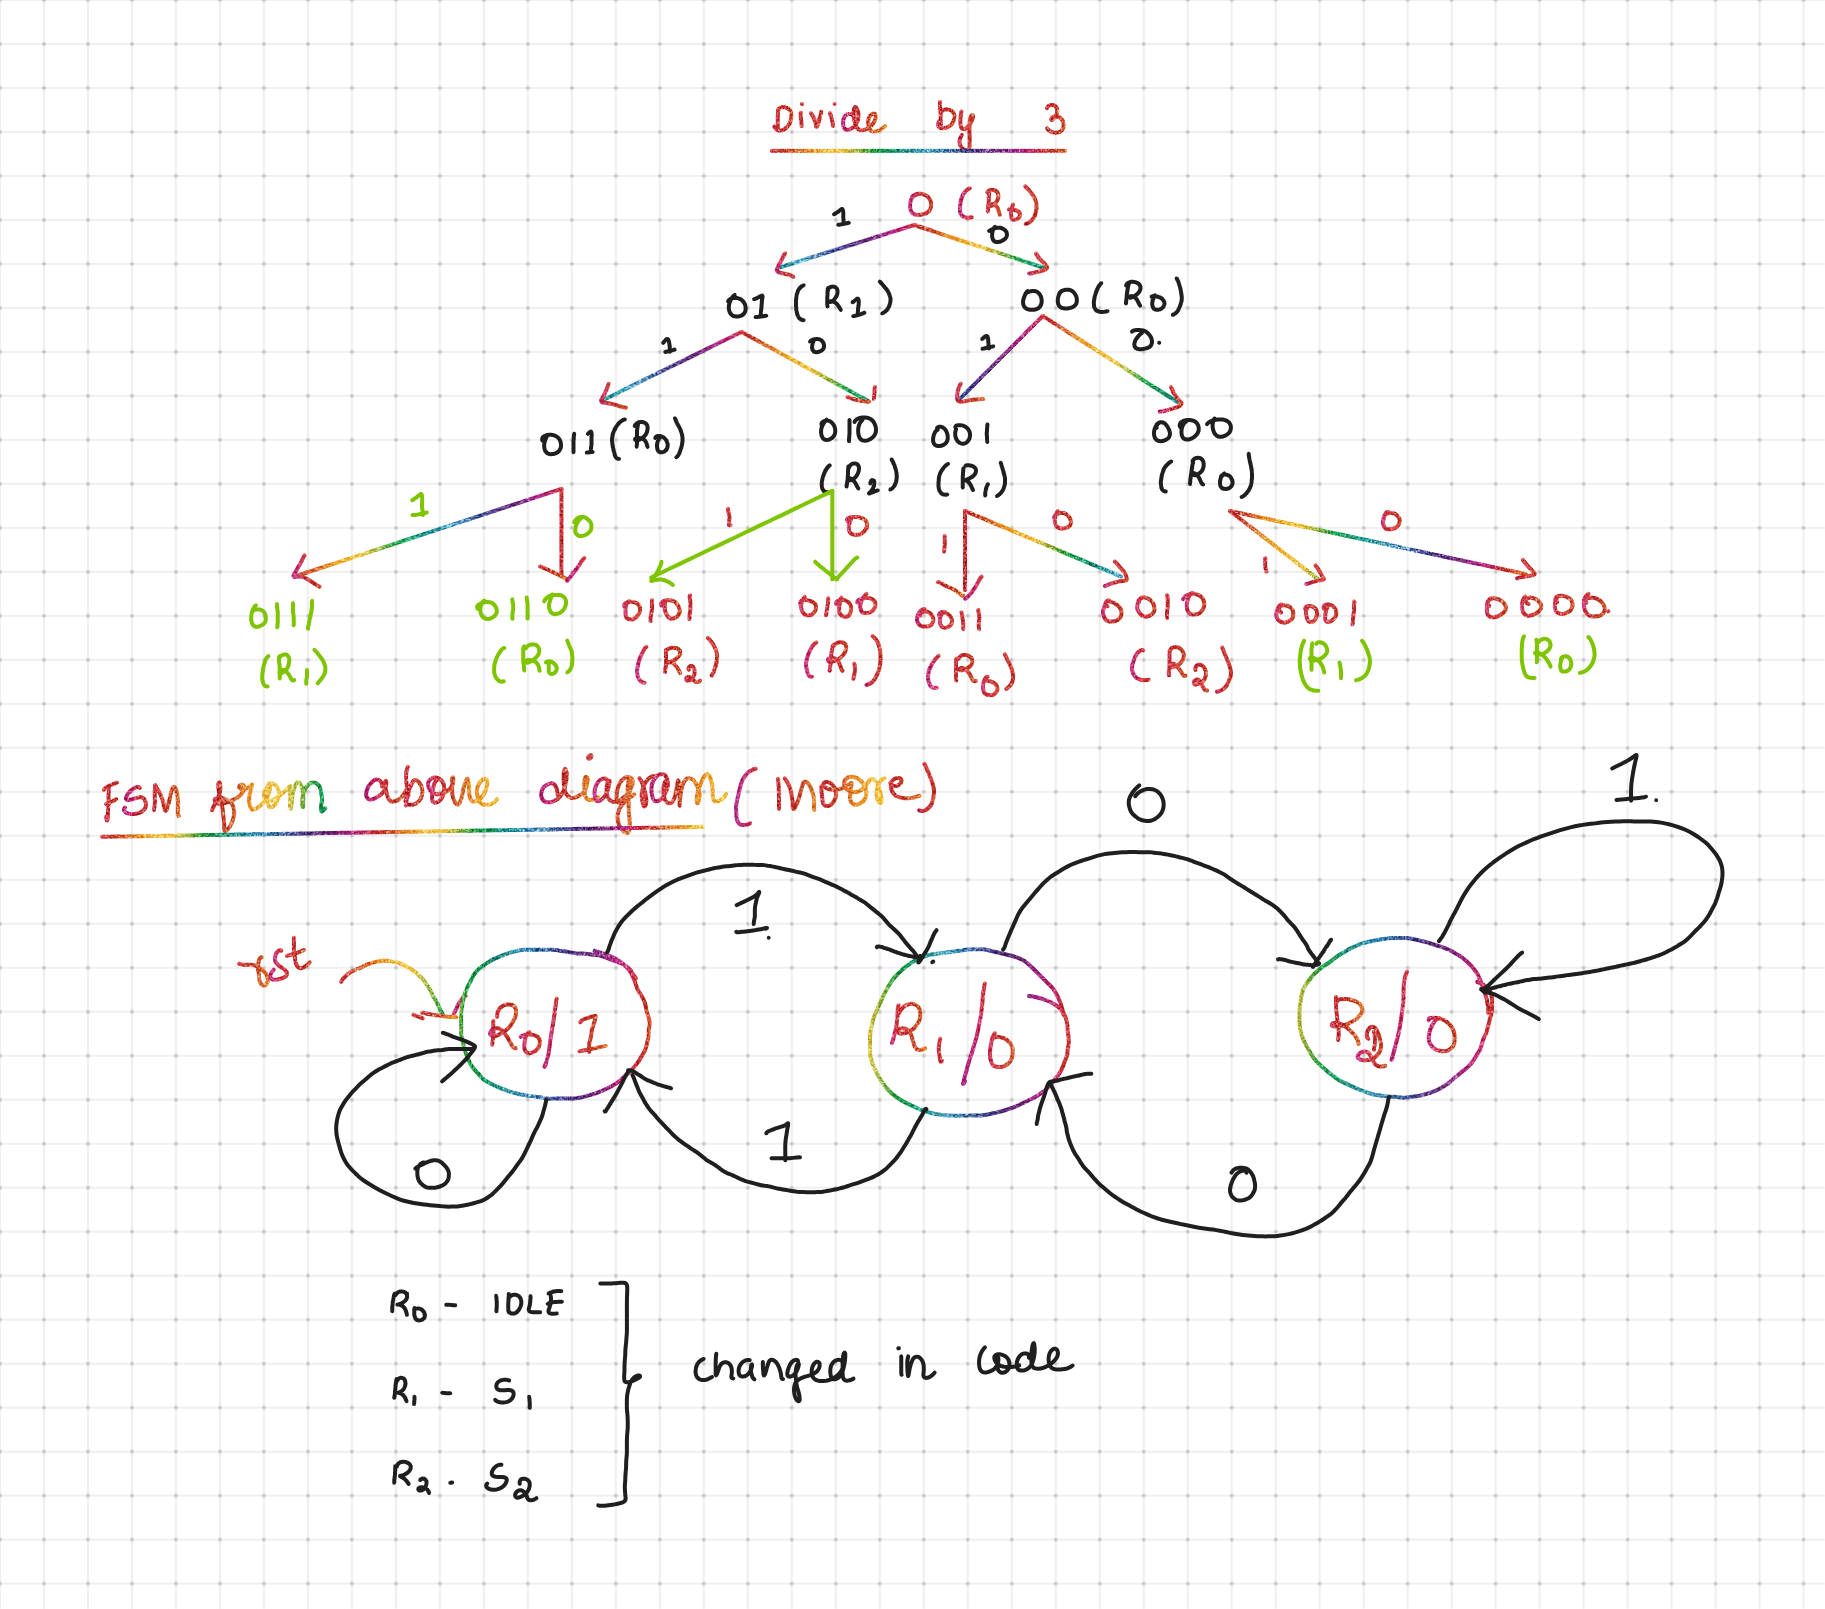 Divide by 3
0 (R0)
1 0
01 (R1) 00 (R0)
1 0 1 0.
011 (R0) 010 (R2) 001 (R1) 000 (R0)
1 0 1 0 1 0 1 0
0111 (R1) 0110 (R0) 0101 (R2) 0100 (R1) 0011 (R0) 0010 (R2) 0001 (R1) 0000. (R0)
FSM from above diagram (moore)
0 1.
1.
rst
R0/1 R1/0 R2/0
0 1 0
R0 - IDLE
R1 - S1
R2 . S2
changed in code